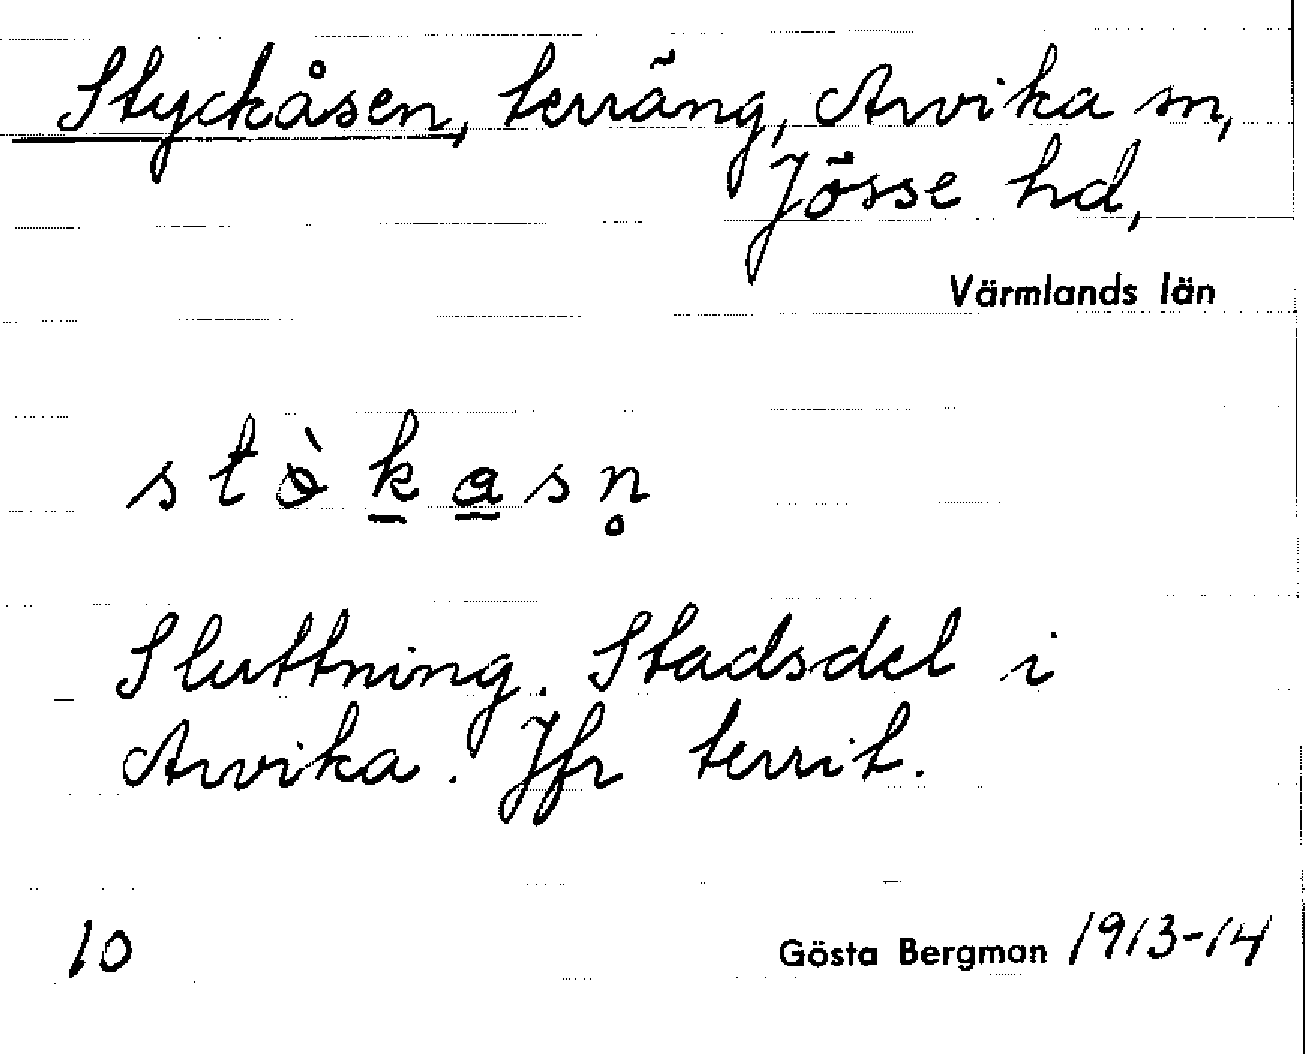 Styckåsen, terräng, Arvika sn,
Jösse hd,
Värmlands län
stø̀k̲a̲sn̥
Sluttning. Stadsdel i
Arvika. Jfr territ.
10
Gösta Bergman 1913-14